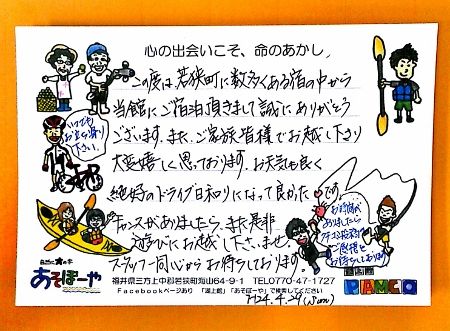 心の出会いこそ、命のあかし
この度は若狭町に数多くある宿の中から
当館にご宿泊頂きまして誠にありがとう
ございます。また、ご家族皆様でお越し下さり
大変嬉しく思っております。お天気も良く
絶好のドライブ日和りになって良かったです。
チャンスがありましたら、また是非
遊びにお越し下さいませ。
スタッフ一同心からお待ちしております。
いつでも
お立ち寄り
下さい。
お時間が
ありましたら
ご感想を
お待ちしております
あそぼーや
福井県三方上中郡若狭町海山64-9-1 TEL0770-47-1727
Facebookページあり 「湖上館」「あそぼーや」で検索してください
PAMCO
2024.4.29(Sun)